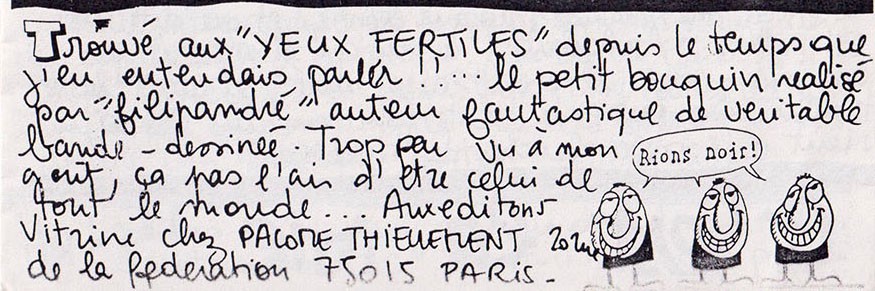 Trouvé aux "YEUX FERTILES" depuis le temps que
j'en entendais parler !!..... le petit bouquin realisé
par "filipandré" auteur fantastique de veritable
bande-dessinéé. Trop peu vu à mon
gout, ça pas l'air d'être celui de
tout le monde... Aux editons
Vitrine chez PACOME THIELLEMENT 20 rue
de la federation 75015 PARIS-
Rions noir!